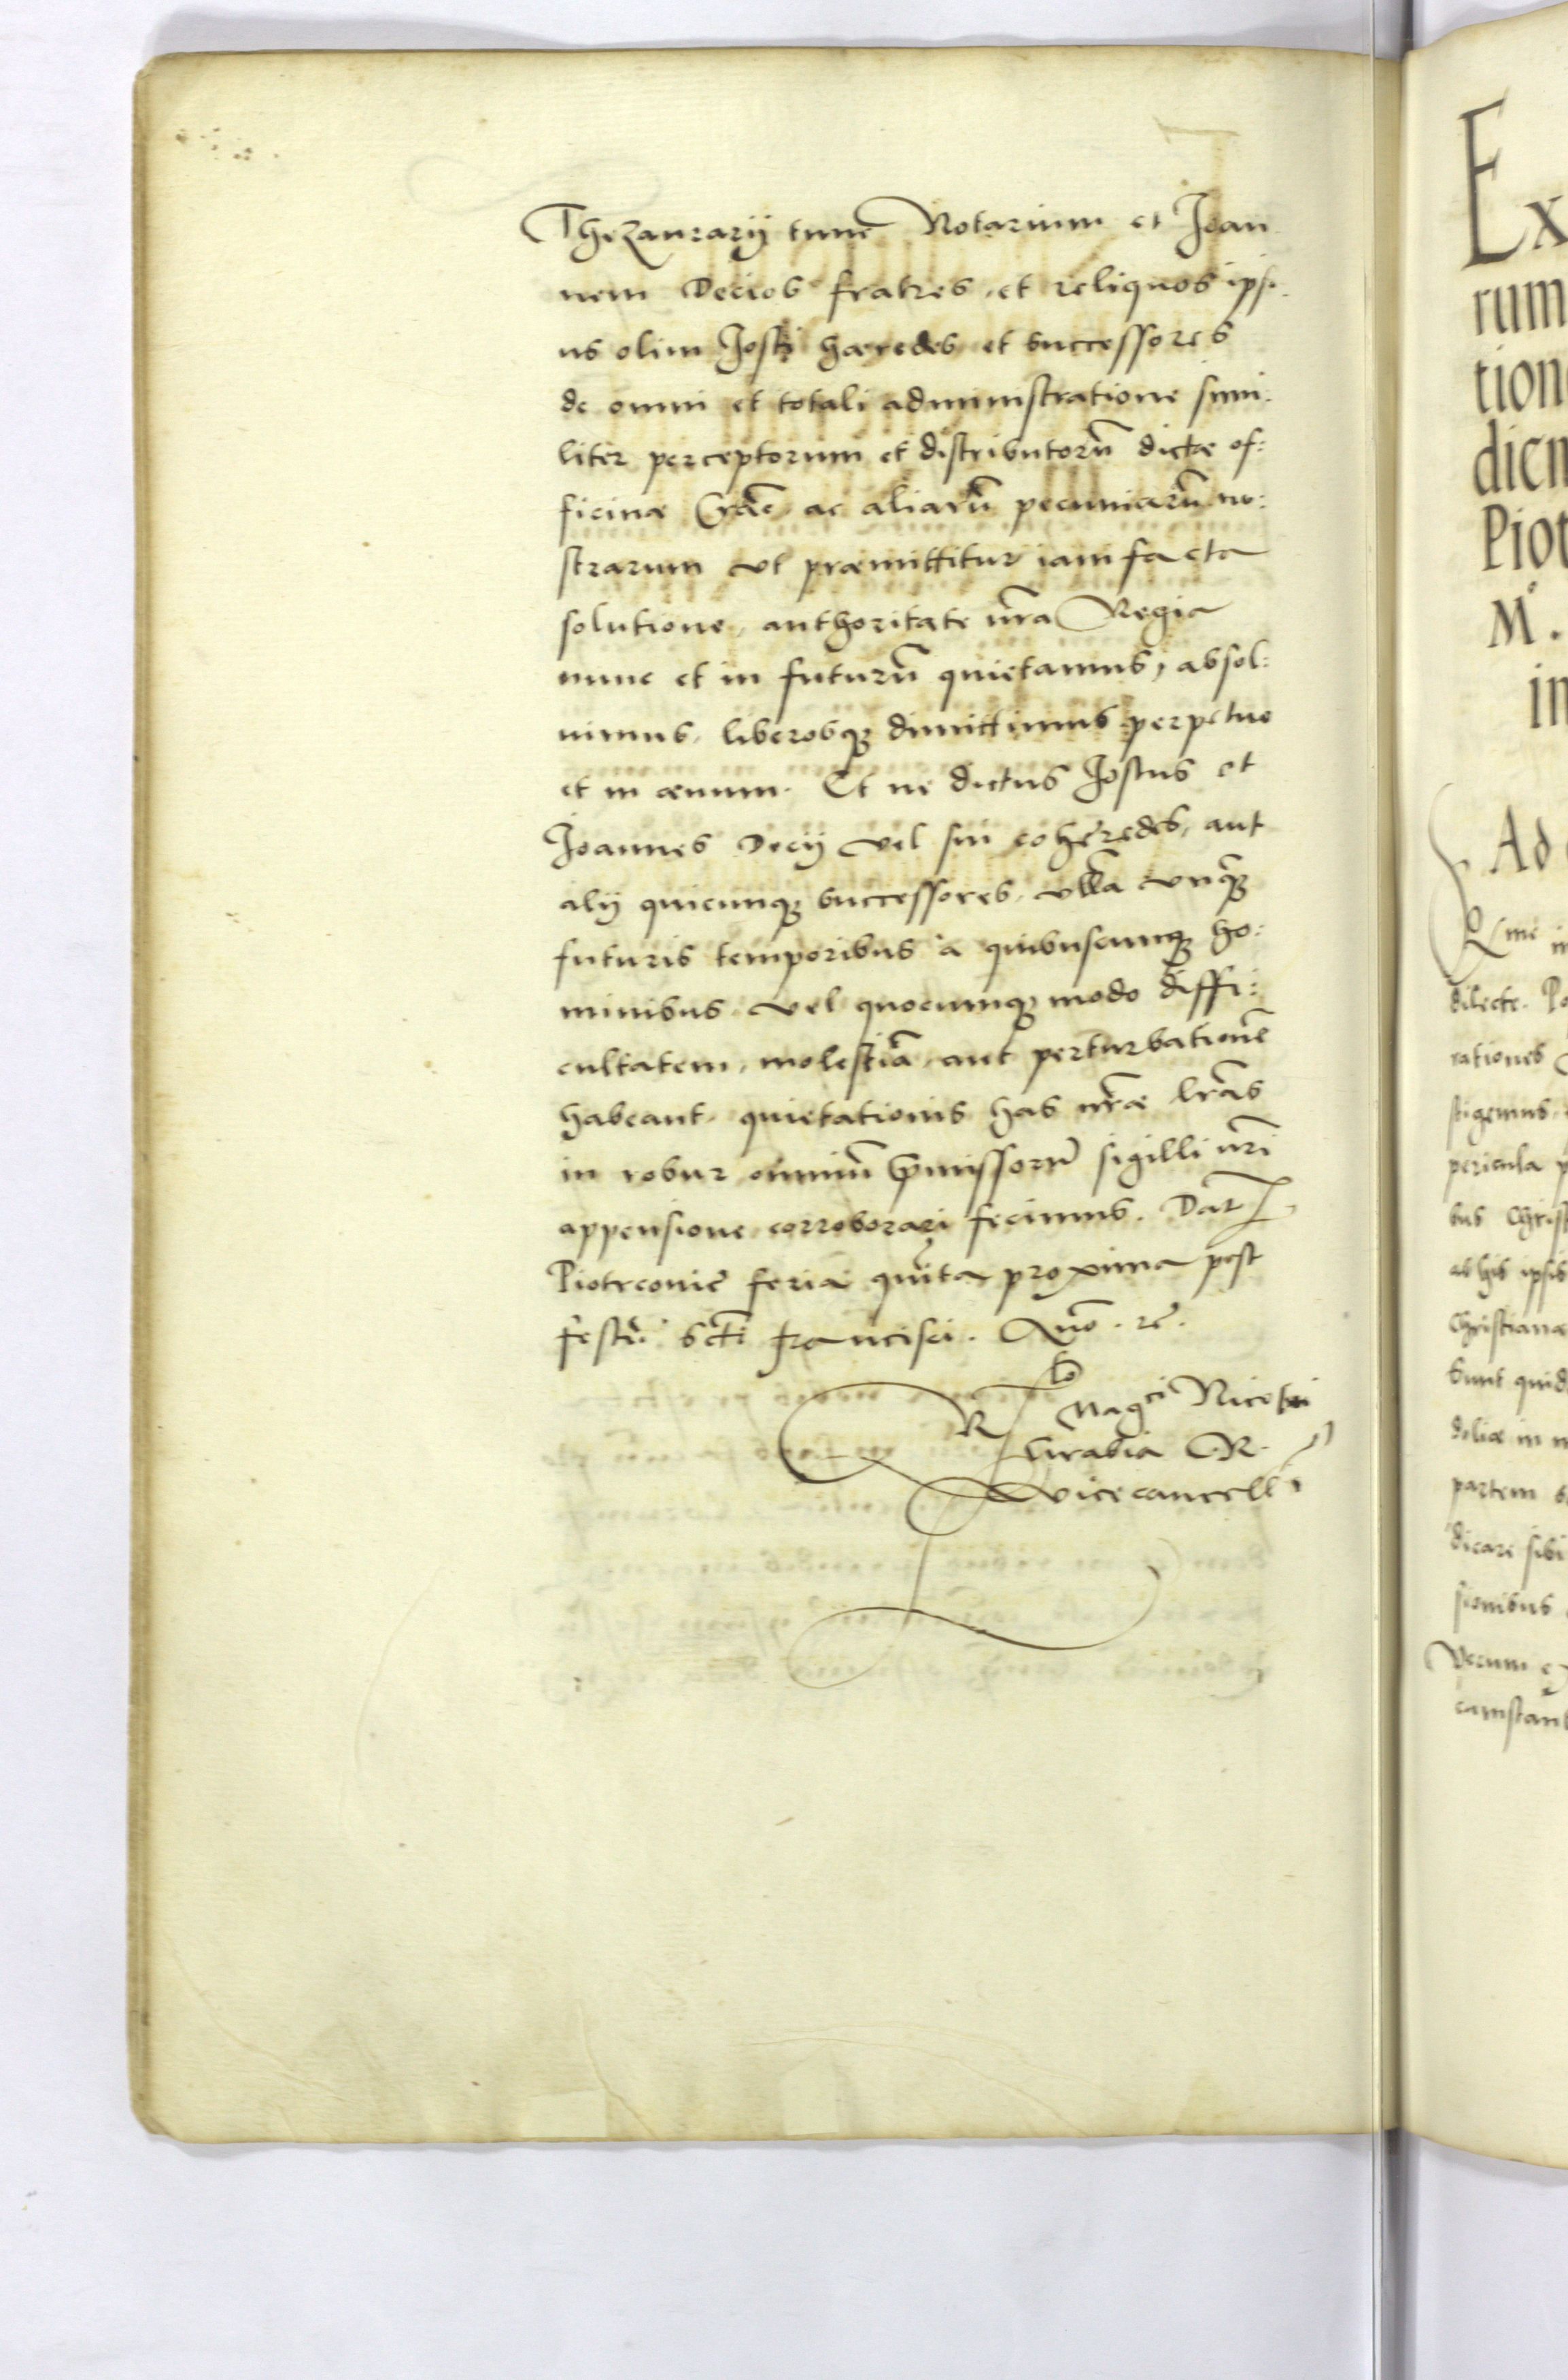 Thezaurarij tunc Notarium et Joan
nem Decios fratres, et reliquos ipsi
us olim Josti hæredes et successores
de omni et totali administratione simi:
liter perceptorum et distributorũ dictæ of:
ficinæ Crac̃ ac aliarũ pecuniarũ no:
strarum ut præmittitur iam facta
solutione, authoritate nr̃a Regia
nunc et in futurũ quietamus, absol:
uimus, liberosq; dimittimus perpetuo
et in æuum. Et ne dictus Jostus et
Joannes Decij vel sui cohæredes, aut
alij quicunq; successores, ulla unq̃
futuris temporibus à quibuscunq; ho:
minibus vel quocunq; modo diffi:
cultatem, molestiã, aut perturbationẽ
habeant, quietationis has nr̃æ lr̃as
in robur omniũ p̃missorũ sigilli nr̃i
appensione corroborari fecimus. Dat
Piotrconiẽ feria quinta proxima post
festũ scti francisci. Año. rẽ.
R
Magci Nicolai
Grabia R.
Vicecancell
Ex
rum
tion
dicn
Piot
M.
in
Ad
dilecte. Po
rationes
stigemus
pericula p
bus Christ
ab his ipsis
Christianæ
Sunt quid
deliæ in n
partem s
dicare sibi
sionibus
Verum ex